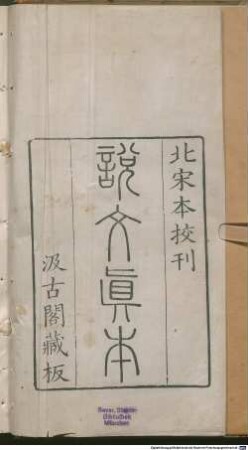 北宋本挍刊
說文真本
汲古閣藏板
Bayer. Staats-
Bibliothek
München